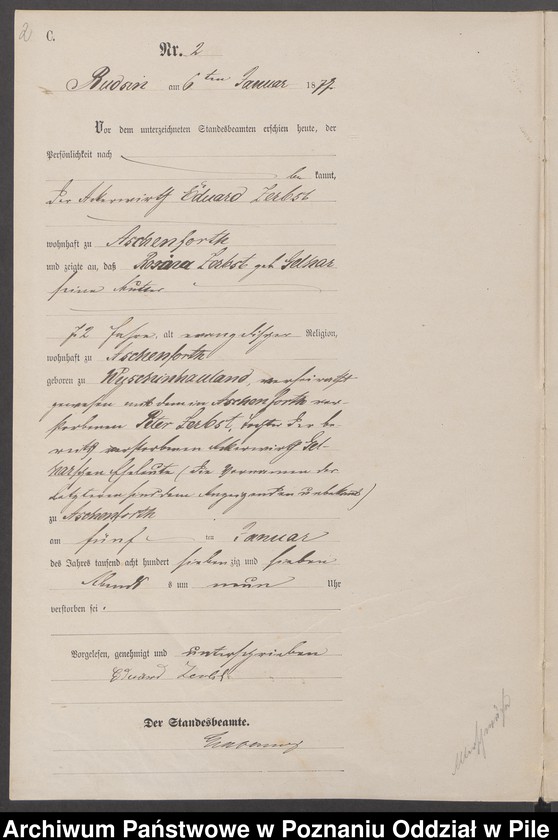 2
C.
Nr. 2
Budsin am 6ten Januar 1877.
Vor dem unterzeichneten Standesbeamten erschien heute, der
Persönlichkeit nach
be kannt,
der Ackerwirth Eduard Zerbst
wohnhaft zu Aschenforth
und zeigte an, daß Rosina Zerbst geb.
seine Mutter
72 Jahre, alt evangelischer Religion,
wohnhaft zu Aschenforth
geboren zu Wyschinhauland, verheirathet
gewesen mit dem in Aschenforth ver-
storbenen Peter Zerbst, Tochter der be-
reits verstorbenen Ackerwirth
schen Eheleute (die Vornamen der
Letzteren sind dem Anzeigenden unbekannt)
zu Aschenforth
am fünf ten Januar
des Jahrs tausend acht hundert sieben zig und sieben
Abends um neun Uhr
verstorben sei.
Vorgelesen, genehmigt und unterschrieben
Eduard Zerbst
Der Standesbeamte.
Archiwum Państwowe w Poznaniu Oddział w Pile